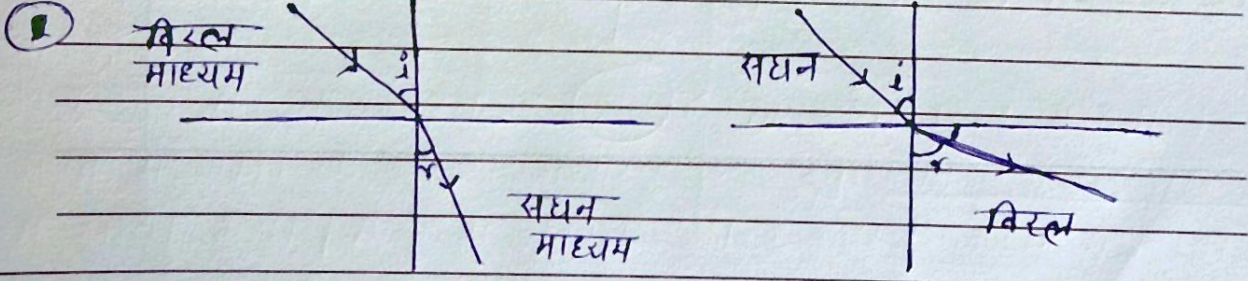 1
विरल
माध्यम
i
r
सघन
माध्यम
सघन
i
r
विरल